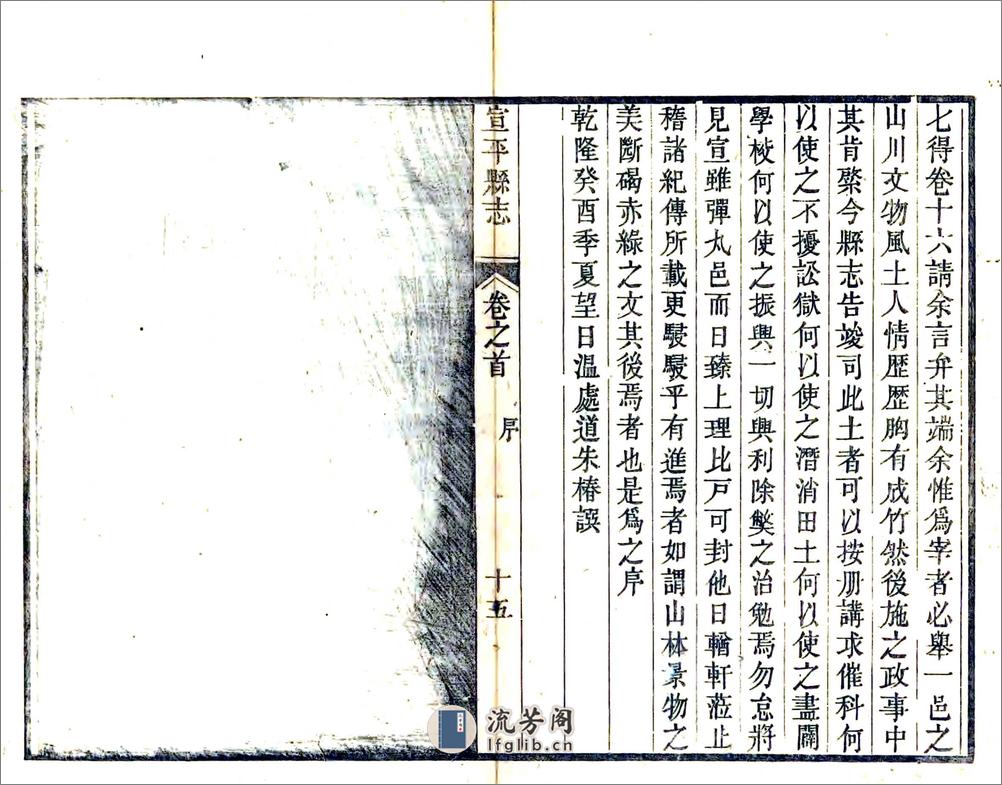 七得卷十六請余言弁其端余惟爲宰者必舉一邑之
山川文物風土人情歷歷胸有成竹然後施之政事中
其肯綮今縣志告竣司此土者可以按册講求催科何
以使之不擾訟獄何以使之潛消田土何以使之盡闢
學校何以使之振興一切興利除獘之治勉焉勿怠將
見宣雖彈丸邑而日臻上理比戸可封他日輶軒蒞止
稽諸紀傳所載更駸駸乎有進焉者如謂山林景物之
美斷碣赤綠之文其後焉者也是爲之序
乾隆癸酉季夏望日溫處道朱椿譔
宣平縣志 卷之首 序 十五
流芳阁
lfglib.cn